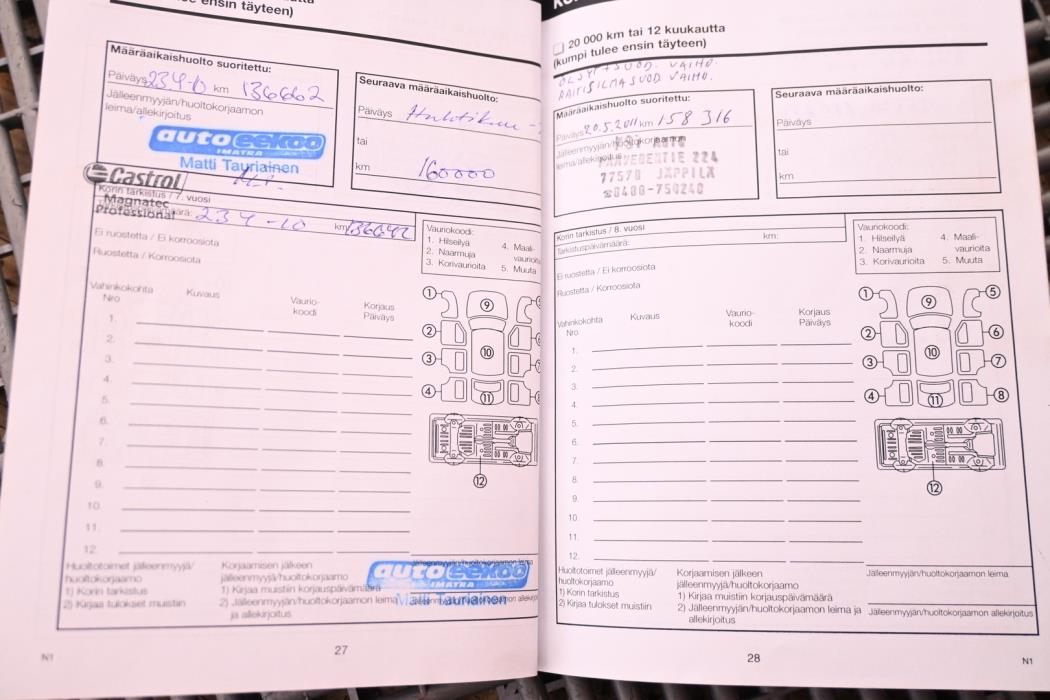 ensin täyteen)
Määräaikaishuolto suoritettu:
Päiväys 23.4-0 km 136662
Jälleenmyyjän/huoltokorjaamon
leima/allekirjoitus
auto eekoo
IMATRA
Matti Tauriainen
Seuraava määräaikaishuolto:
Päiväys Huhtikuu
tai
km 160000
Castrol
Magnatec
Professional
Korin tarkistus / 7. vuosi
23 4 -10 km
Ei ruostetta / Ei korroosiota
Ruostetta / Korroosiota
Vauriokoodi:
1. Hilseilyä
2. Naarmuja
3. Korivaurioita
4. Maali-
vaurioita
5. Muuta
Vahinkokohta Kuvaus Vaurio- Korjaus
Nro koodi Päiväys
1.
2.
3.
4.
5.
6.
7.
8.
9.
10.
11.
12.
1 9
2
3 10
4 11
12
Huoltotoimet jälleenmyyjä/
huoltokorjaamo
1) Korin tarkistus
2) Kirjaa tulokset muistiin
Korjaamisen jälkeen
jälleenmyyjä/huoltokorjaamo
1) Kirjaa muistiin korjauspäivämäärä
2) Jälleenmyyjän/huoltokorjaamon leima
ja allekirjoitus
auto eekoo
IMATRA
Matti Tauriainen
N1
27
20 000 km tai 12 kuukautta
(kumpi tulee ensin täyteen)
VAIHO.
RAITISILMASUOD. VAIHO.
Määräaikaishuolto suoritettu:
Päiväys 20.5.2011 km 158 316
Jälleenmyyjän/huoltokorjaamon
leima/allekirjoitus
AUTO
224
77570 JÄPPILÄ
☎0400-750240
Seuraava määräaikaishuolto:
Päiväys
tai
km
Korin tarkistus / 8. vuosi
Tarkistuspäivämäärä: km:
Ei ruostetta / Ei korroosiota
Ruostetta / Korroosiota
Vauriokoodi:
1. Hilseilyä
2. Naarmuja
3. Korivaurioita
4. Maali-
vaurioita
5. Muuta
Vahinkokohta Kuvaus Vaurio- Korjaus
Nro koodi Päiväys
1.
2.
3.
4.
5.
6.
7.
8.
9.
10.
11.
12.
1 9 5
2 6
3 10 7
4 11 8
12
Huoltotoimet jälleenmyyjä/
huoltokorjaamo
1) Korin tarkistus
2) Kirjaa tulokset muistiin
Korjaamisen jälkeen
jälleenmyyjä/huoltokorjaamo
1) Kirjaa muistiin korjauspäivämäärä
2) Jälleenmyyjän/huoltokorjaamon leima ja
allekirjoitus
Jälleenmyyjän/huoltokorjaamon leima
Jälleenmyyjän/huoltokorjaamon allekirjoitus
28
N1